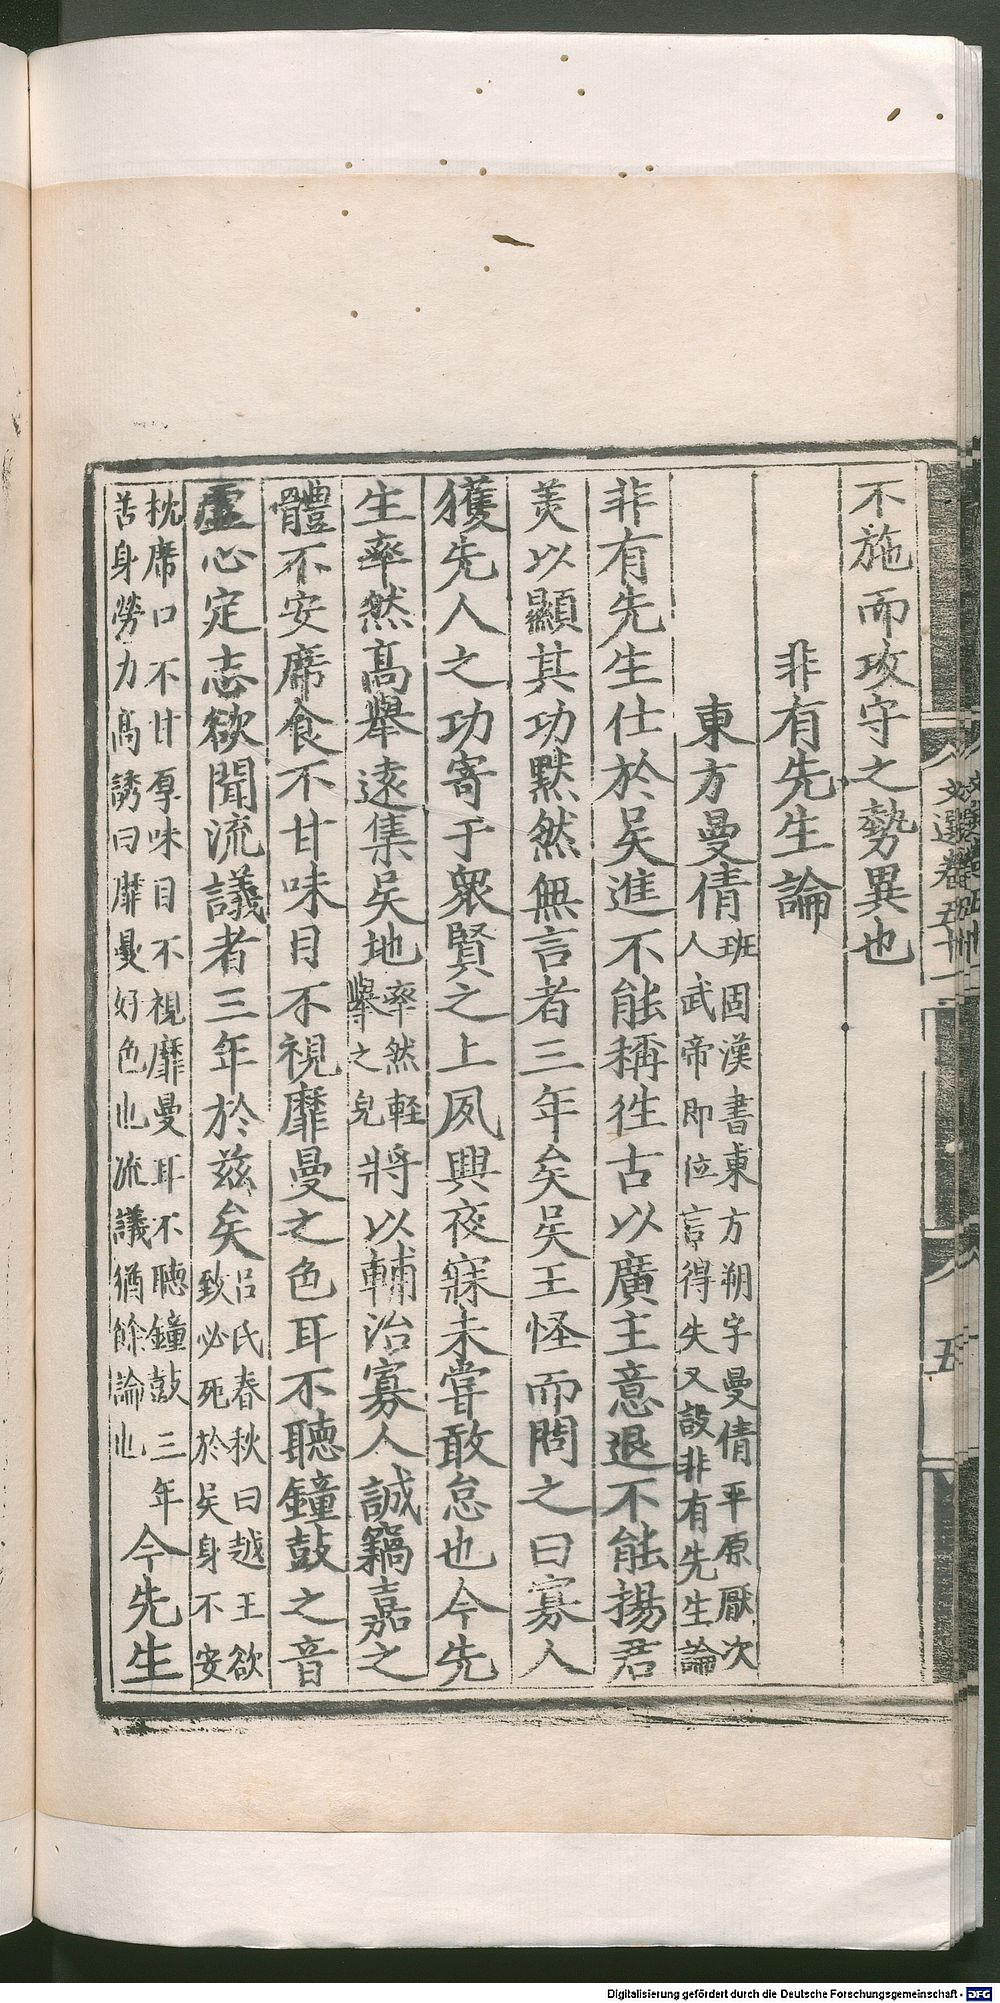 不施而攻守之勢異也
非有先生論
東方曼倩班固漢書東方朔字曼倩平原厭次
人武帝即位言得失又設非有先生論
非有先生仕於吳進不能稱徃古以廣主意退不能揚君
羙以顯其功默然無言者三年矣吳王怪而問之曰寡人
獲先人之功寄于衆賢之上夙興夜寐未甞敢怠也今先
生率然高舉逺集吳地率然輕
舉之皃將以輔治寡人誠竊嘉之
體不安席食不甘味目不視靡曼之色耳不聽鐘鼓之音
虛心定志欲聞流議者三年於兹矣吕氏春秋曰越王欲
致必死於吳身不安
枕席口不甘厚味目不視靡曼耳不聽鐘鼓三年
苦身勞力高誘曰靡曼好色也流議猶餘論也今先生
文選卷五十一
五
Digitalisierung gefördert durch die Deutsche Forschungsgemeinschaft - DFG